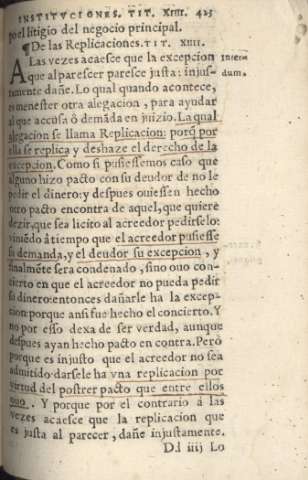 INSTITVCIONES. TIT. XIIII. 423
por el litigio del negocio principal.
¶De las Replicaciones. TIT. XIIII.
A Las vezes acaesce que la excepcion
que al parescer paresce justa: injus-
tamente dañe. Lo qual quando acontece,
es menester otra alegacion, para ayudar
al que accusa ô demãda en juizio. La qual
alegacion se llama Replicacion: porq̃ por
ella se replica y deshaze el derecho de la
excepcion. Como si pusiessemos caso que
alguno hizo pacto con su deudor de no le
pedir el dinero: y despues ouiessen hecho
otro pacto encontra de aquel, que quiere
dezir, que sea licito al acreedor pedirselo:
viniẽdo â tiempo que el acreedor pusiesse
su demanda, y el deudor su excepcion, y
finalmẽte sera condenado, sino ouo con-
cierto en que el acreedor no pueda pedir
su dinero: entonces dañarle ha la excep-
cion: porque ansi fue hecho el concierto. Y
no por esso dexa de ser verdad, aunque
despues ayan hecho pacto en contra. Però
porque es injusto que el acreedor no sea
admitido: darsele ha vna replicacion por
virtud del postrer pacto que entre ellos
ouo. Y porque por el contrario â las
vezes acaesce que la replicacion que
es justa al parecer, dañe injustamente.
D.d iiij Lo
dum.